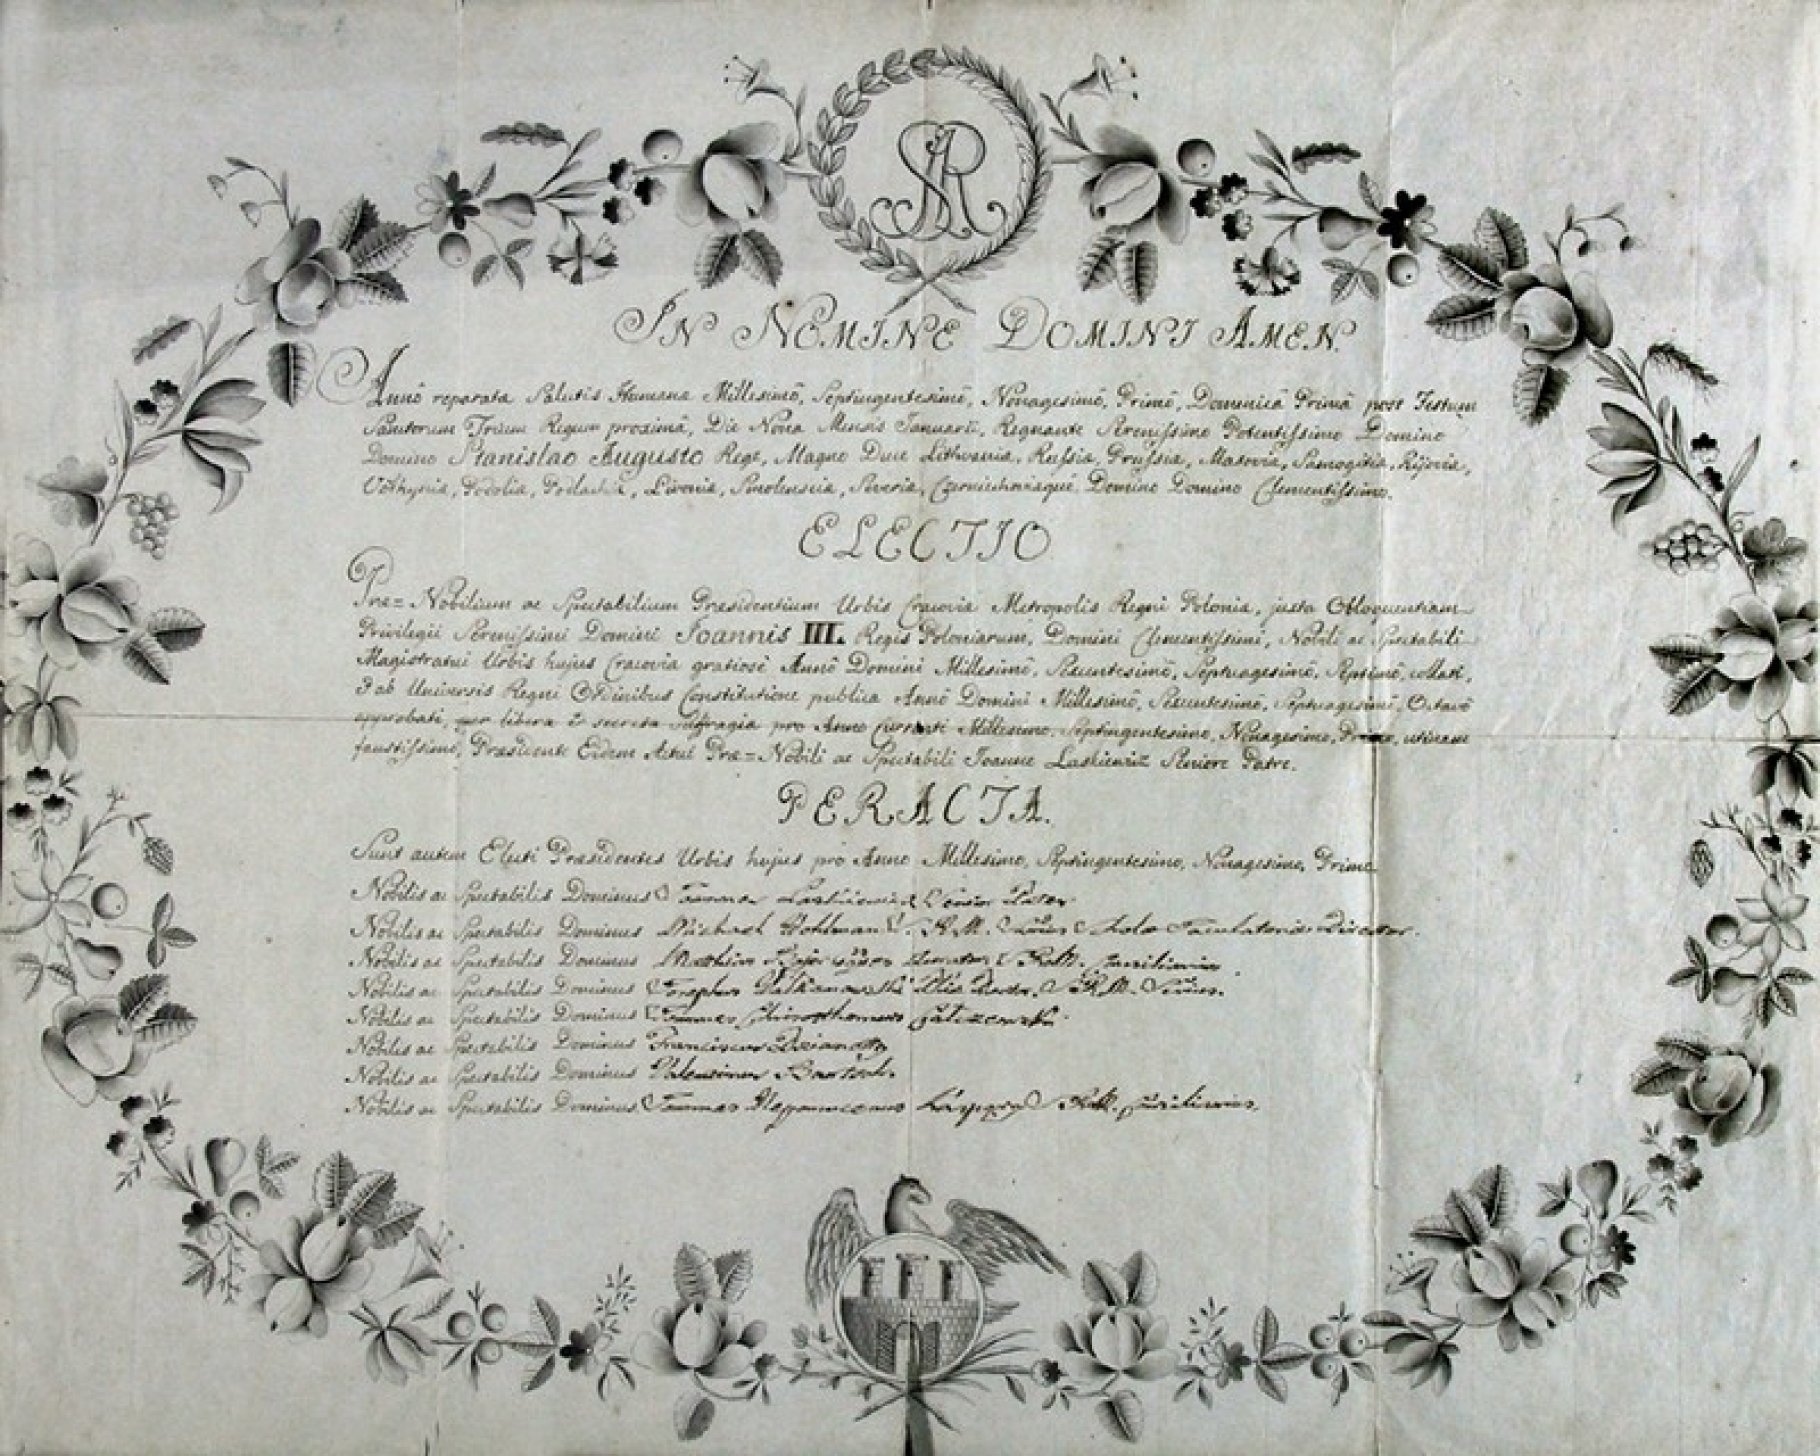 SAR
IN NOMINE DOMINI AMEN.
Annô reparata Salutis Humana Millesimô, Septingentesimô, Nonagesimô, Primô, Domenicâ Primâ post Festum
Sanctorum Trium Regum proximâ, Die Nona Mensis Januarii, Regnante Serenissimo Potentissimo Domino
Domino Stanislao Augusto Rege, Magno Duce Lithvania, Russia, Prussia, Masovia, Samogitia, Kijovia,
Volhynia, Podolia, Podlachia, Livonia, Smolenscia, Severia, Czerniechoviaque Domino Domino Clementissimo.
ELECTIO
Præ=Nobilium ac Spectabilium Præsidentium Urbis Cracovia Metropolis Regni Polonia, juxta Obloquentiam
Privilegii Serenissimi Domini Joannis III. Regis Poloniarum, Domini Clementissimi, Nobili ac Spectabili
Magistratui Urbis hujus Cracovia gratiosè Annô Domini Millesimô, Sexcentesimô, Septuagesimô, Septimô, collati,
& ab Universis Regni Ordinibus Constitutione publica Annô Domini Millesimô, Sexcentesimô, Septuagesimô, Octavô
approbati, per libera & secreta Suffragia pro Anno Currenti Millesimo, Septingentesimo, Nonagesimo, Primo, utinam
faustissimo, Præsidente Eidem Actui Præ=Nobili ac Spectabili Joanne Laskiewicz Seniore Patre.
PERACTA.
Sunt autem Electi Præsidentes Urbis hujus pro Anno Millesimo, Septingentesimo, Nonagesimo, Primo
Nobilis ac Spectabilis Dominus Joannes Laskiewicz Senior Pater.
Nobilis ac Spectabilis Dominus Michael Wohlman S. R. M. Director.
Nobilis ac Spectabilis Dominus Mathias S. R. M.
Nobilis ac Spectabilis Dominus Josephus S. R. M.
Nobilis ac Spectabilis Dominus Joannes
Nobilis ac Spectabilis Dominus Franciscus
Nobilis ac Spectabilis Dominus Valentinus Bartsch.
Nobilis ac Spectabilis Dominus Joannes Nepomucenus S. R. M.